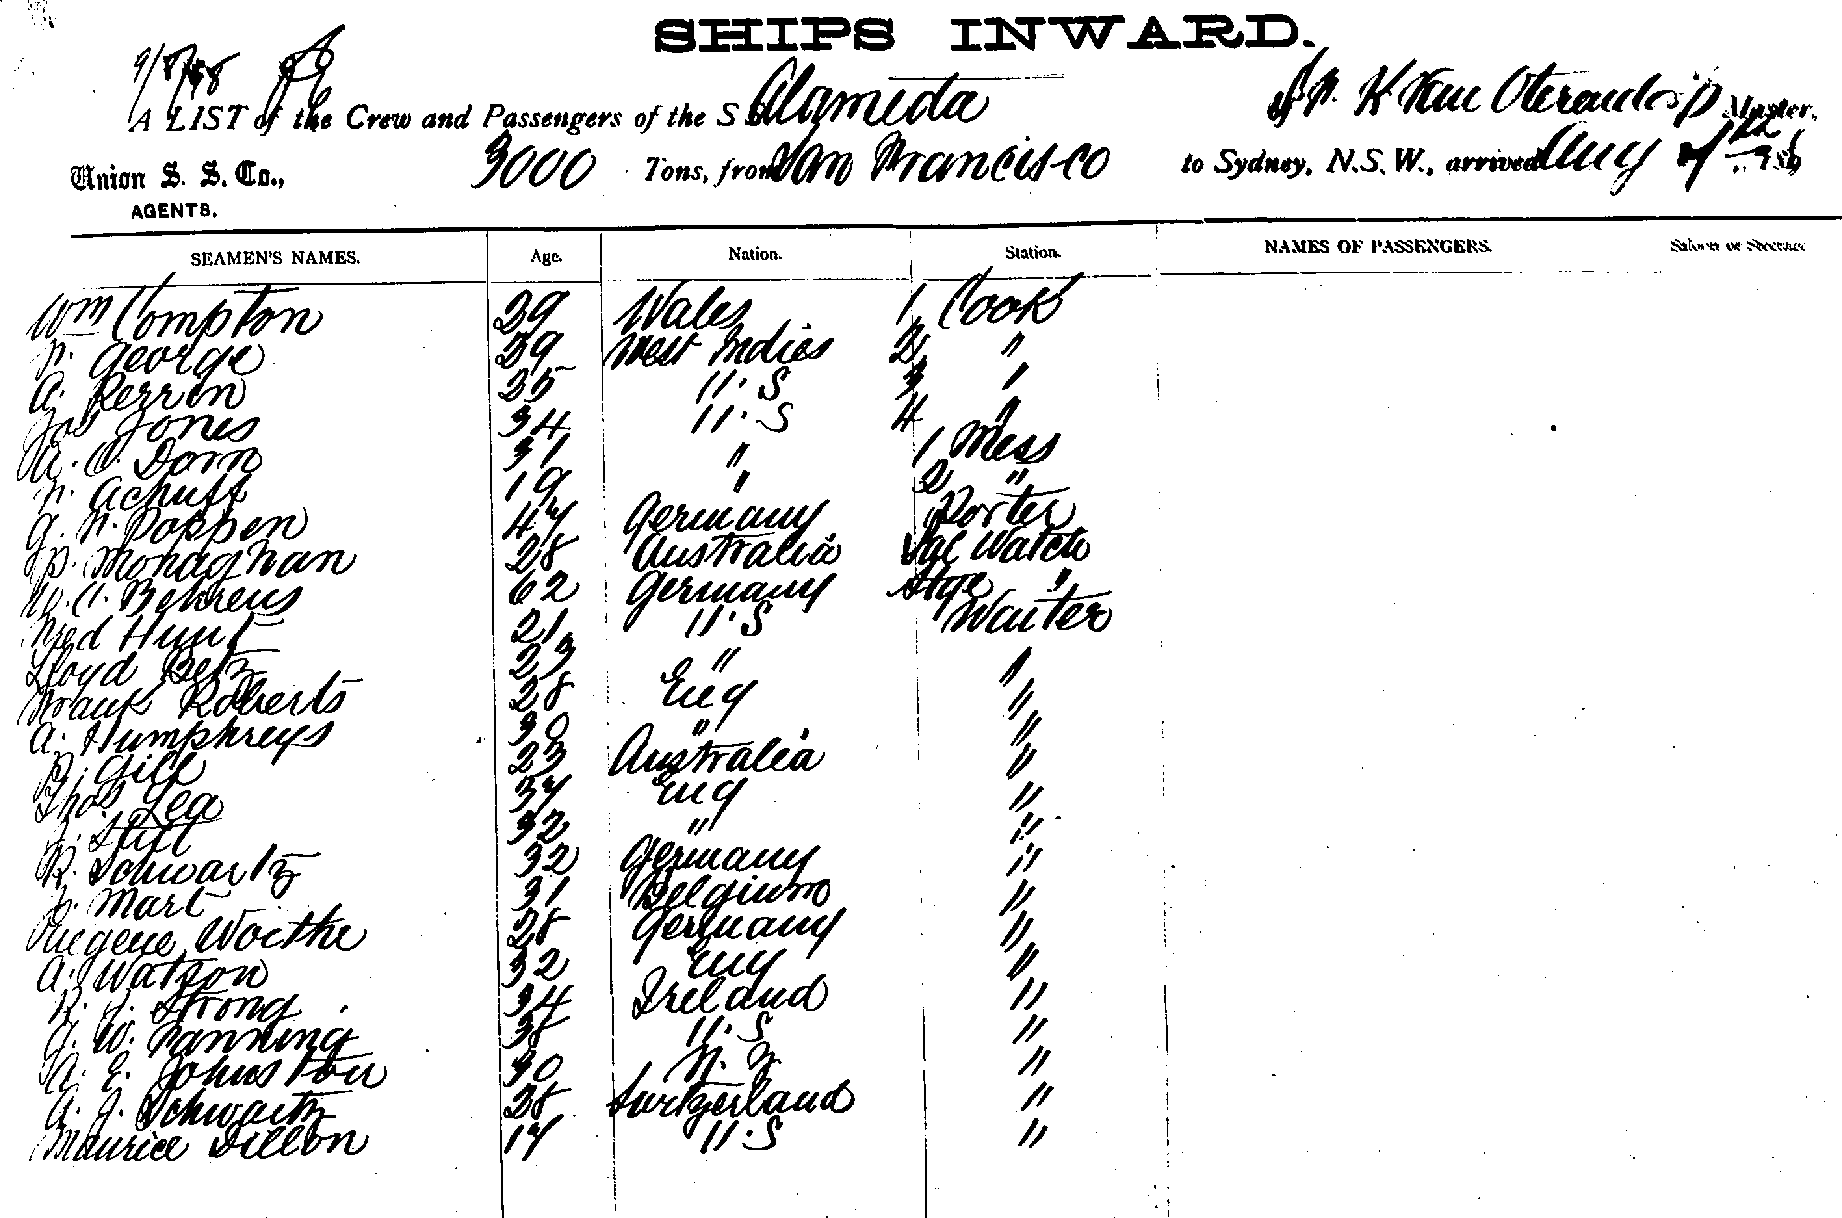 SHIPS INWARD.
A LIST of the Crew and Passengers of the S Alameda Van Oterendorp Master,
Union S. S. Co., 3000 Tons, from San Francisco to Sydney, N.S.W., arrived Aug
AGENTS.
SEAMEN'S NAMES. Age. Nation. Station. NAMES OF PASSENGERS. Saloon or Steerage
Wm Compton 39 Wales 1 Cook
George 39 West Indies 2 "
A. Perrin 35 U.S 3 "
Jas Jones 34 U.S 4 "
Dorn 31 " 1 Mess
Achuff 19 " 2 "
Poppen 47 Germany Porter
P. Monaghan 28 Australia Watch
Behrens 62 Germany Stge "
Fred Hunt 21 U.S Waiter
Lloyd Betz 23 " "
Frank Roberts 28 Eng "
A. Humphreys 30 " "
Gill 23 Australia "
Thos. Lea 37 Eng "
Stitt 32 " "
R. Schwartz 32 Germany "
J. Mart 31 Belgium "
Eugene Woithe 28 Germany "
A. Watson 32 Eng "
Strong 34 Ireland "
J. W. Fanning 38 U.S "
E. Johnston 30 N. Z "
A. J. Schwartz 28 Switzerland "
Maurice Dillon 17 U.S "